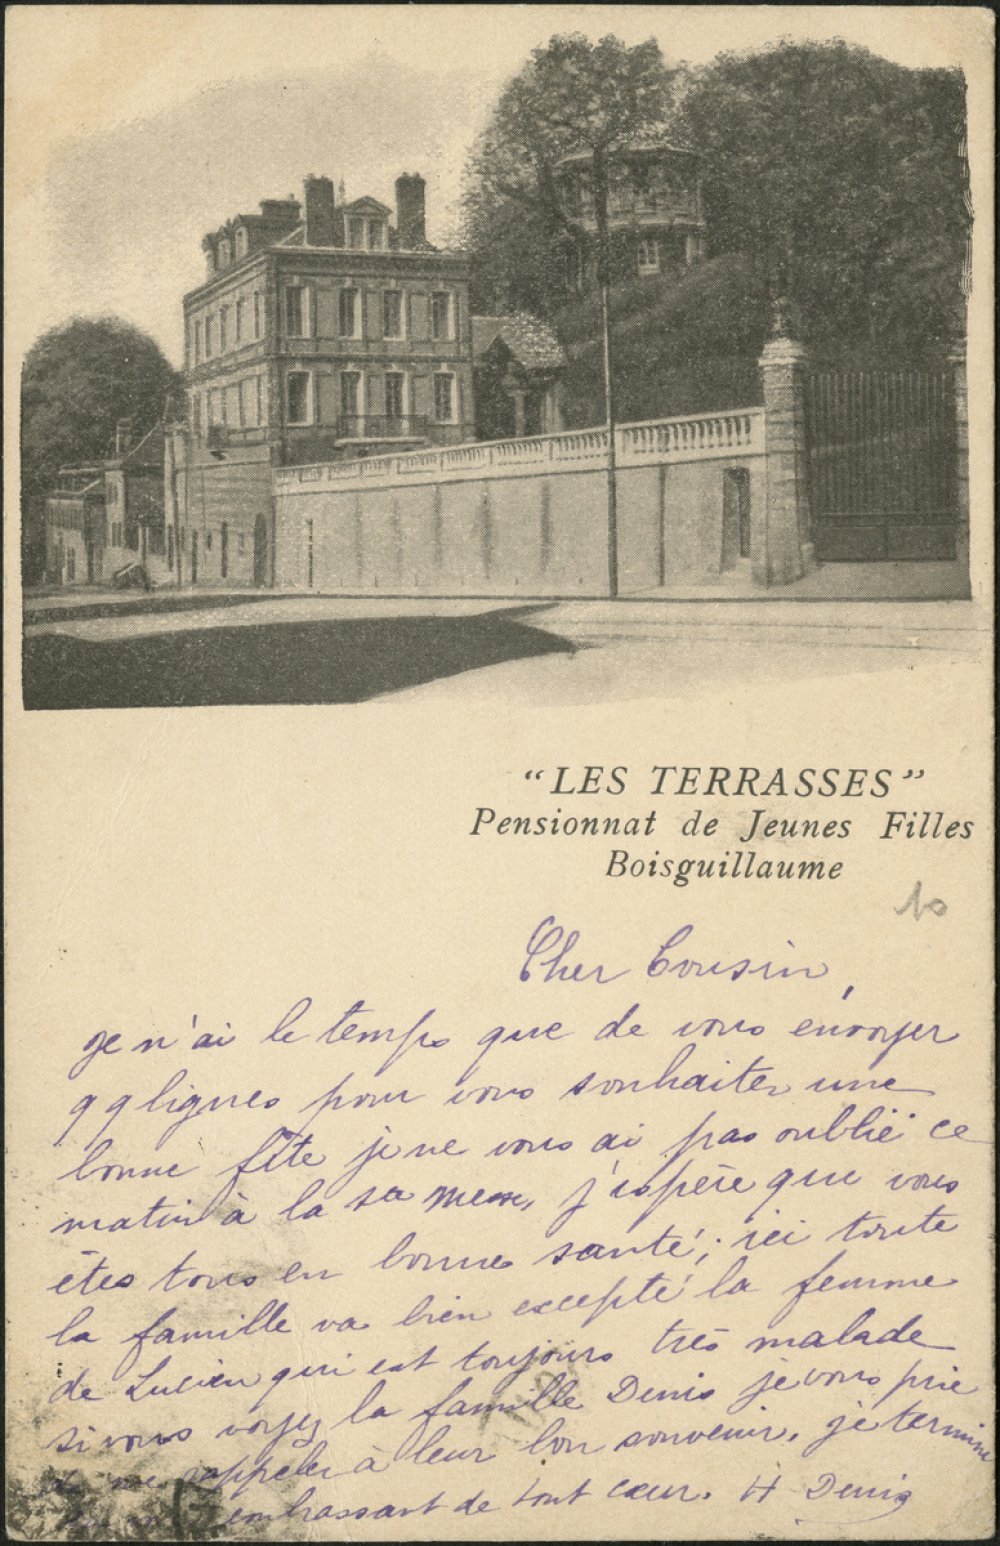 “LES TERRASSES”
Pensionnat de Jeunes Filles
Boisguillaume
10
Cher Cousin,
je n'ai le temps que de vous envoyer
qq lignes pour vous souhaiter une
bonne fête je ne vous ai pas oublié ce
matin à la ste messe, j'espère que vous
êtes tous en bonne santé; ici toute
la famille va bien excepté la femme
de Lucien qui est toujours très malade
si vous voyez la famille Denis je vous prie
de me rappeler à leur bon souvenir, je termine
en vous embrassant de tout cœur. H Denis